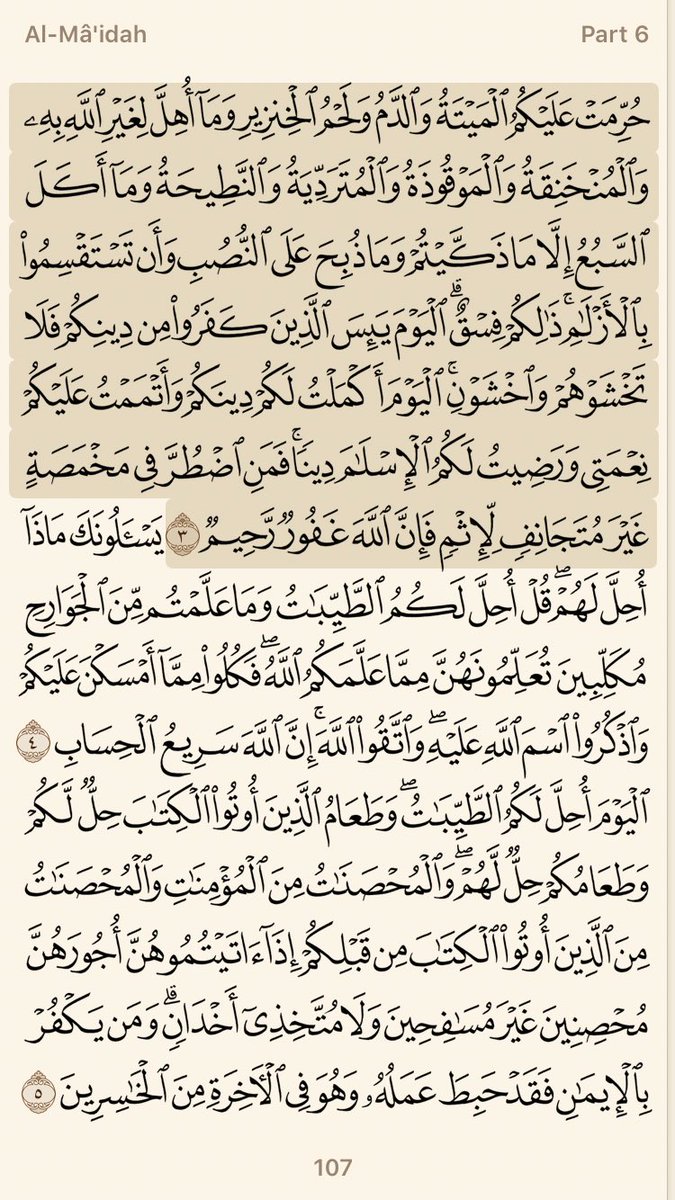 Al-Mâ'idah
Part 6
حُرِّمَتْ عَلَيْكُمُ ٱلْمَيْتَةُ وَٱلدَّمُ وَلَحْمُ ٱلْخِنزِيرِ وَمَآ أُهِلَّ لِغَيْرِ ٱللَّهِ بِهِۦ
وَٱلْمُنْخَنِقَةُ وَٱلْمَوْقُوذَةُ وَٱلْمُتَرَدِّيَةُ وَٱلنَّطِيحَةُ وَمَآ أَكَلَ
ٱلسَّبُعُ إِلَّا مَا ذَكَّيْتُمْ وَمَا ذُبِحَ عَلَى ٱلنُّصُبِ وَأَن تَسْتَقْسِمُوا۟
بِٱلْأَزْلَـٰمِ ۚ ذَٰلِكُمْ فِسْقٌ ۗ ٱلْيَوْمَ يَئِسَ ٱلَّذِينَ كَفَرُوا۟ مِن دِينِكُمْ فَلَا
تَخْشَوْهُمْ وَٱخْشَوْنِ ۚ ٱلْيَوْمَ أَكْمَلْتُ لَكُمْ دِينَكُمْ وَأَتْمَمْتُ عَلَيْكُمْ
نِعْمَتِى وَرَضِيتُ لَكُمُ ٱلْإِسْلَـٰمَ دِينًا ۚ فَمَنِ ٱضْطُرَّ فِى مَخْمَصَةٍ
غَيْرَ مُتَجَانِفٍ لِّإِثْمٍ فَإِنَّ ٱللَّهَ غَفُورٌ رَّحِيمٌ ٣ يَسْـَٔلُونَكَ مَاذَآ
أُحِلَّ لَهُمْ ۖ قُلْ أُحِلَّ لَكُمُ ٱلطَّيِّبَـٰتُ وَمَا عَلَّمْتُم مِّنَ ٱلْجَوَارِحِ
مُكَلِّبِينَ تُعَلِّمُونَهُنَّ مِمَّا عَلَّمَكُمُ ٱللَّهُ ۖ فَكُلُوا۟ مِمَّآ أَمْسَكْنَ عَلَيْكُمْ
وَٱذْكُرُوا۟ ٱسْمَ ٱللَّهِ عَلَيْهِ ۖ وَٱتَّقُوا۟ ٱللَّهَ ۚ إِنَّ ٱللَّهَ سَرِيعُ ٱلْحِسَابِ ٤
ٱلْيَوْمَ أُحِلَّ لَكُمُ ٱلطَّيِّبَـٰتُ ۖ وَطَعَامُ ٱلَّذِينَ أُوتُوا۟ ٱلْكِتَـٰبَ حِلٌّ لَّكُمْ
وَطَعَامُكُمْ حِلٌّ لَّهُمْ ۖ وَٱلْمُحْصَنَـٰتُ مِنَ ٱلْمُؤْمِنَـٰتِ وَٱلْمُحْصَنَـٰتُ
مِنَ ٱلَّذِينَ أُوتُوا۟ ٱلْكِتَـٰبَ مِن قَبْلِكُمْ إِذَآ ءَاتَيْتُمُوهُنَّ أُجُورَهُنَّ
مُحْصِنِينَ غَيْرَ مُسَـٰفِحِينَ وَلَا مُتَّخِذِىٓ أَخْدَانٍ ۗ وَمَن يَكْفُرْ
بِٱلْإِيمَـٰنِ فَقَدْ حَبِطَ عَمَلُهُۥ وَهُوَ فِى ٱلْـَٔاخِرَةِ مِنَ ٱلْخَـٰسِرِينَ ٥
107